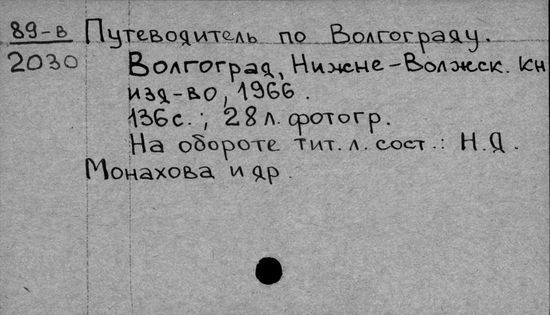 89-в Путеводитель по Волгограду.
2030 Волгоград, Нижне-Волжск. кн
изд-во, 1966.
136с.; 28л. фотогр.
На обороте тит. л. сост.: Н.Д.
Монахова и др.